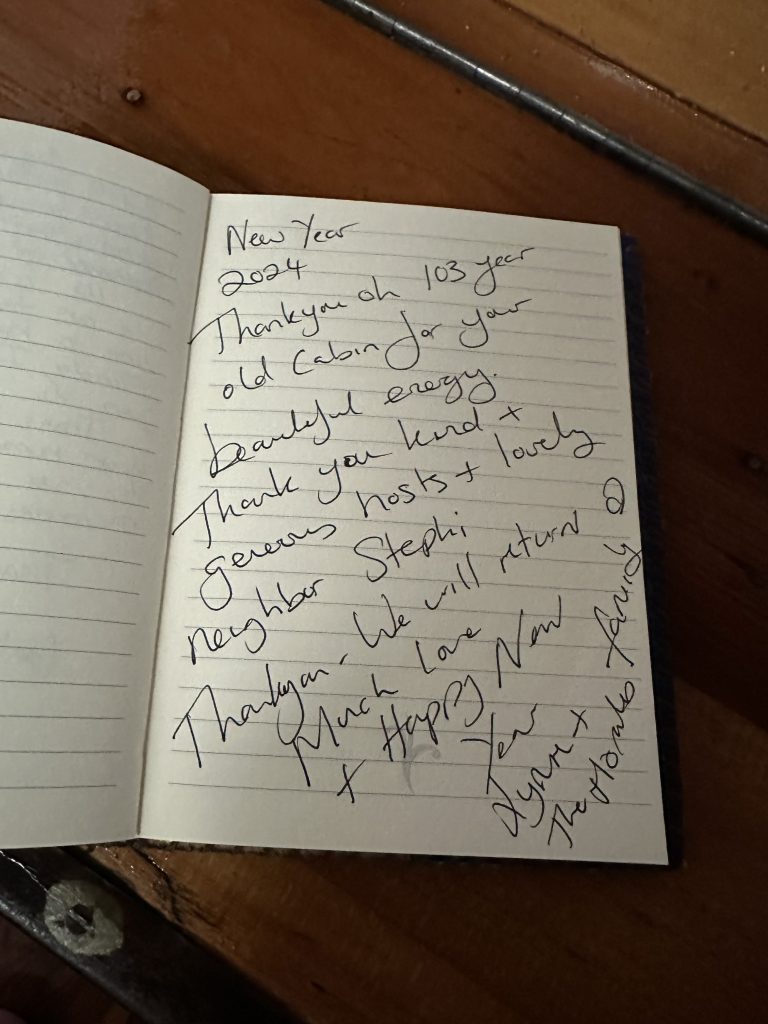 New Year
2024
Thankyou oh 103 year
old Cabin for your
beautiful energy.
Thank you kind +
generous hosts + lovely
neighbor Stephi
Thankyou. We will return
Much Love
+ Happy New
Year
Lynne +
The family